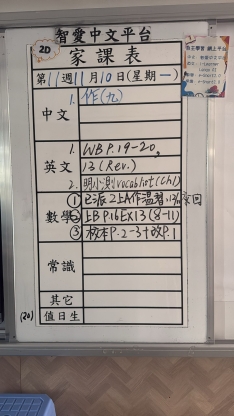 智愛中文平台
2D
家課表
第11週11月10日(星期一)
中文
1. 作(九)
英文
1. WB P.19-20,
13 (Rev.)
2. 明小測vocab
數學
① 已派2上A作溫習
② 上B P.16 Ex13 (8-11)
③ 校本P.2-3+改P.1
常識
其它
(20)
值日生